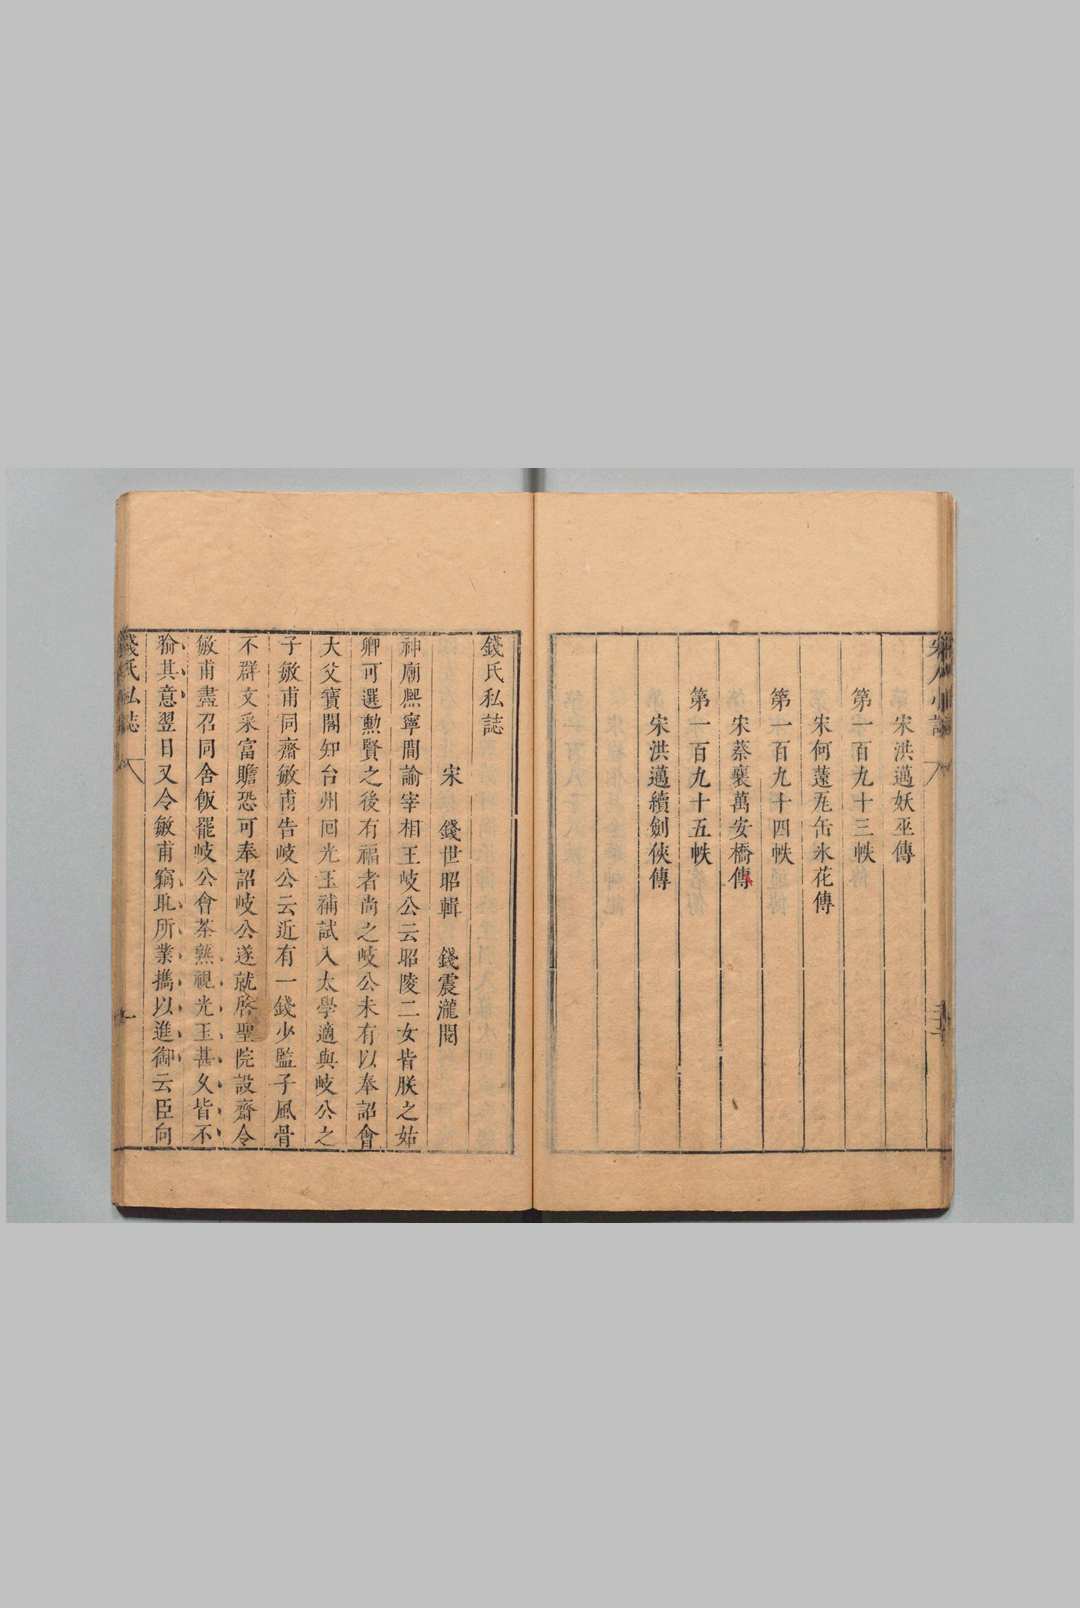 宋人小說
宋洪邁妖巫傳
第一百九十三帙
宋何薳瓦缶氷花傳
第一百九十四帙
宋蔡襄萬安橋傳
第一百九十五帙
宋洪邁續劍俠傳
錢氏私誌
宋 錢世昭輯 錢震瀧閱
神廟熙寧間諭宰相王岐公云昭陵二女皆朕之姑
卿可選勲賢之後有福者尚之岐公未有以奉詔會
大父寶閣知台州囘光玉補試入太學適與岐公之
子敏甫同齋敏甫告岐公云近有一錢少監子風骨
不群文采富贍恐可奉詔岐公遂就啓聖院設齋令
敏甫盡召同舍飯罷岐公會茶熟視光玉甚久皆不
喻其意翌日又令敏甫竊取所業擕以進御云臣向
錢氏私誌 一